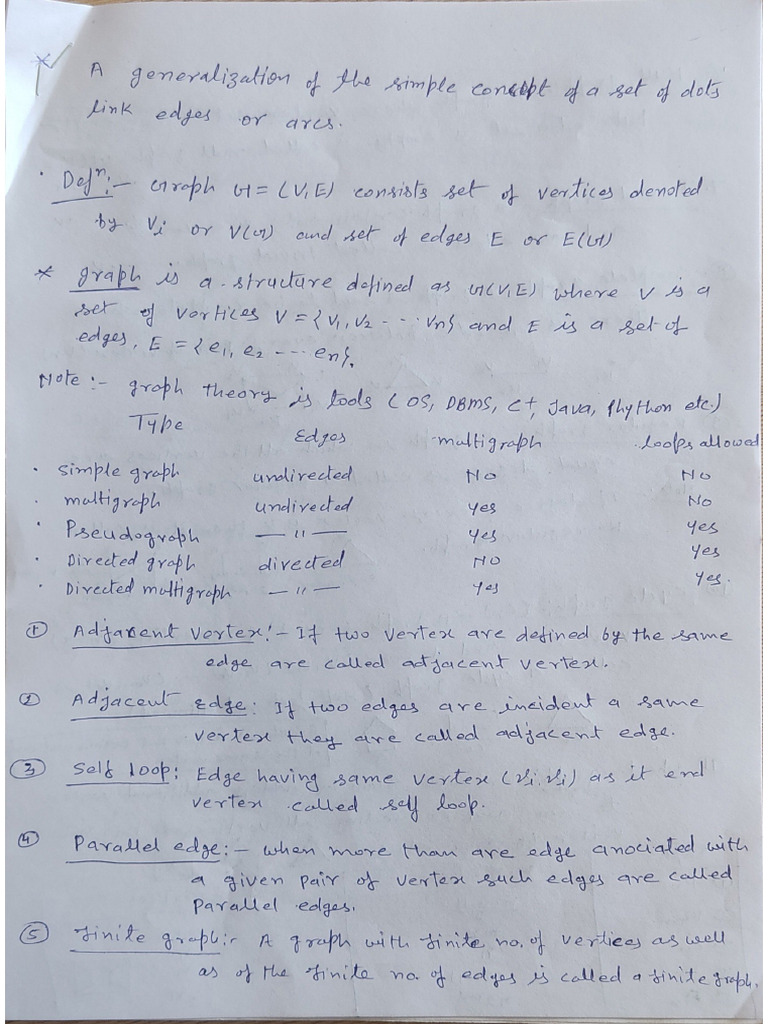 * A generalization of the simple concept of a set of dots
link edges or arcs.
· Defⁿ:- Graph G = (V,E) consists set of vertices denoted
by Vi or V(G) and set of edges E or E(G)
* graph is a structure defined as G(V,E) where V is a
set of vertices V = {V1, V2 --- Vn} and E is a set of
edges, E = {e1, e2 --- en}.
Note :- graph theory is tools (OS, DBMS, C+, Java, Phython etc.)
Type Edges multigraph loops allowed
· Simple graph undirected No No
· multigraph undirected Yes No
· Pseudograph —"— Yes Yes
· Directed graph directed No Yes
· Directed multigraph —"— Yes Yes.
① Adjacent Vertex:- If two vertex are defined by the same
edge are called adjacent vertex.
② Adjacent Edge: If two edges are incident a same
vertex they are called adjacent edge.
③ Self loop: Edge having same vertex (vi, vi) as it end
vertex called self loop.
④ Parallel edge:- when more than are edge associated with
a given pair of vertex such edges are called
Parallel edges.
⑤ Finite graph:- A graph with finite no. of vertices as well
as of the finite no. of edges is called a finite graph.